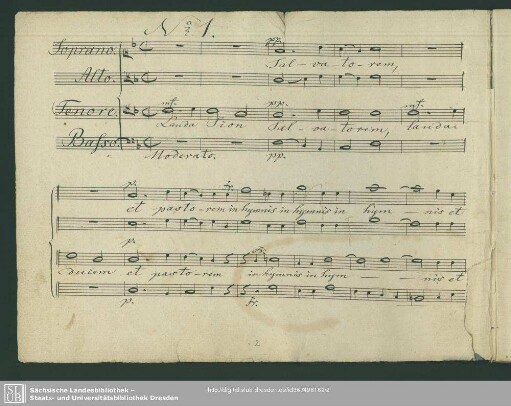 No 1.
Soprano.
pp.
Sal - va - to - rem,
Alto.
Tenore.
mf.
pp.
mf.
Lauda Sion Sal - va - torem, lauda
Basso.
Moderato.
pp.
p.
tr
et pasto - rem in hymnis in hymnis in hym nis et
p.
ducem et pasto - rem in hymnis in hym - - nis et
p.
2
Sächsische Landesbibliothek –
Staats- und Universitätsbibliothek Dresden